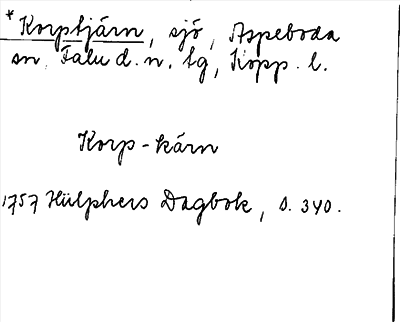 *Korptjärn, sjö, Aspeboda
sn, Falu d. n. tg, Kopp. l.
Korp-kärn
1757 Hülphers Dagbok, s. 340.